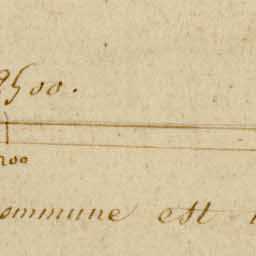 2500.
200
commune est